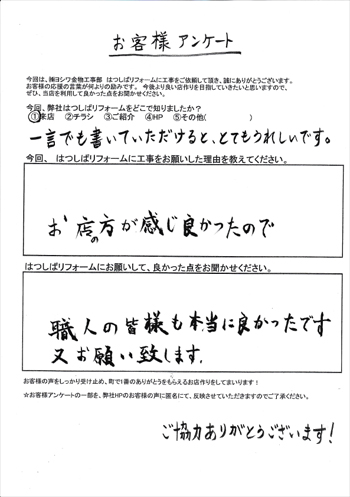 お客様 アンケート
今回は、㈱ヨシワ金物工事部 はつしばリフォームに工事をご依頼して頂き、誠にありがとうございます。
お客様の応援の言葉が何よりの励みです。 今後より良い店作りを目指していきたいと思いますので、
ぜひ、当店を利用して良かった点をお聞かせください。
今回、弊社はつしばリフォームをどこで知りましたか？
①来店 ②チラシ ③ご紹介 ④HP ⑤その他( )
一言でも書いていただけると、とてもうれしいです。
今回、 はつしばリフォームに工事をお願いした理由を教えてください。
お店の方が感じ良かったので
はつしばリフォームにお願いして、良かった点をお聞かせください。
職人の皆様も本当に良かったです
又お願い致します.
お客様の声をしっかり受け止め、町で1番のありがとうをもらえるお店作りをしてまいります！
☆お客様アンケートの一部を、弊社HPのお客様の声に匿名にて、反映させていただきますのでご了承ください。
ご協力ありがとうございます！